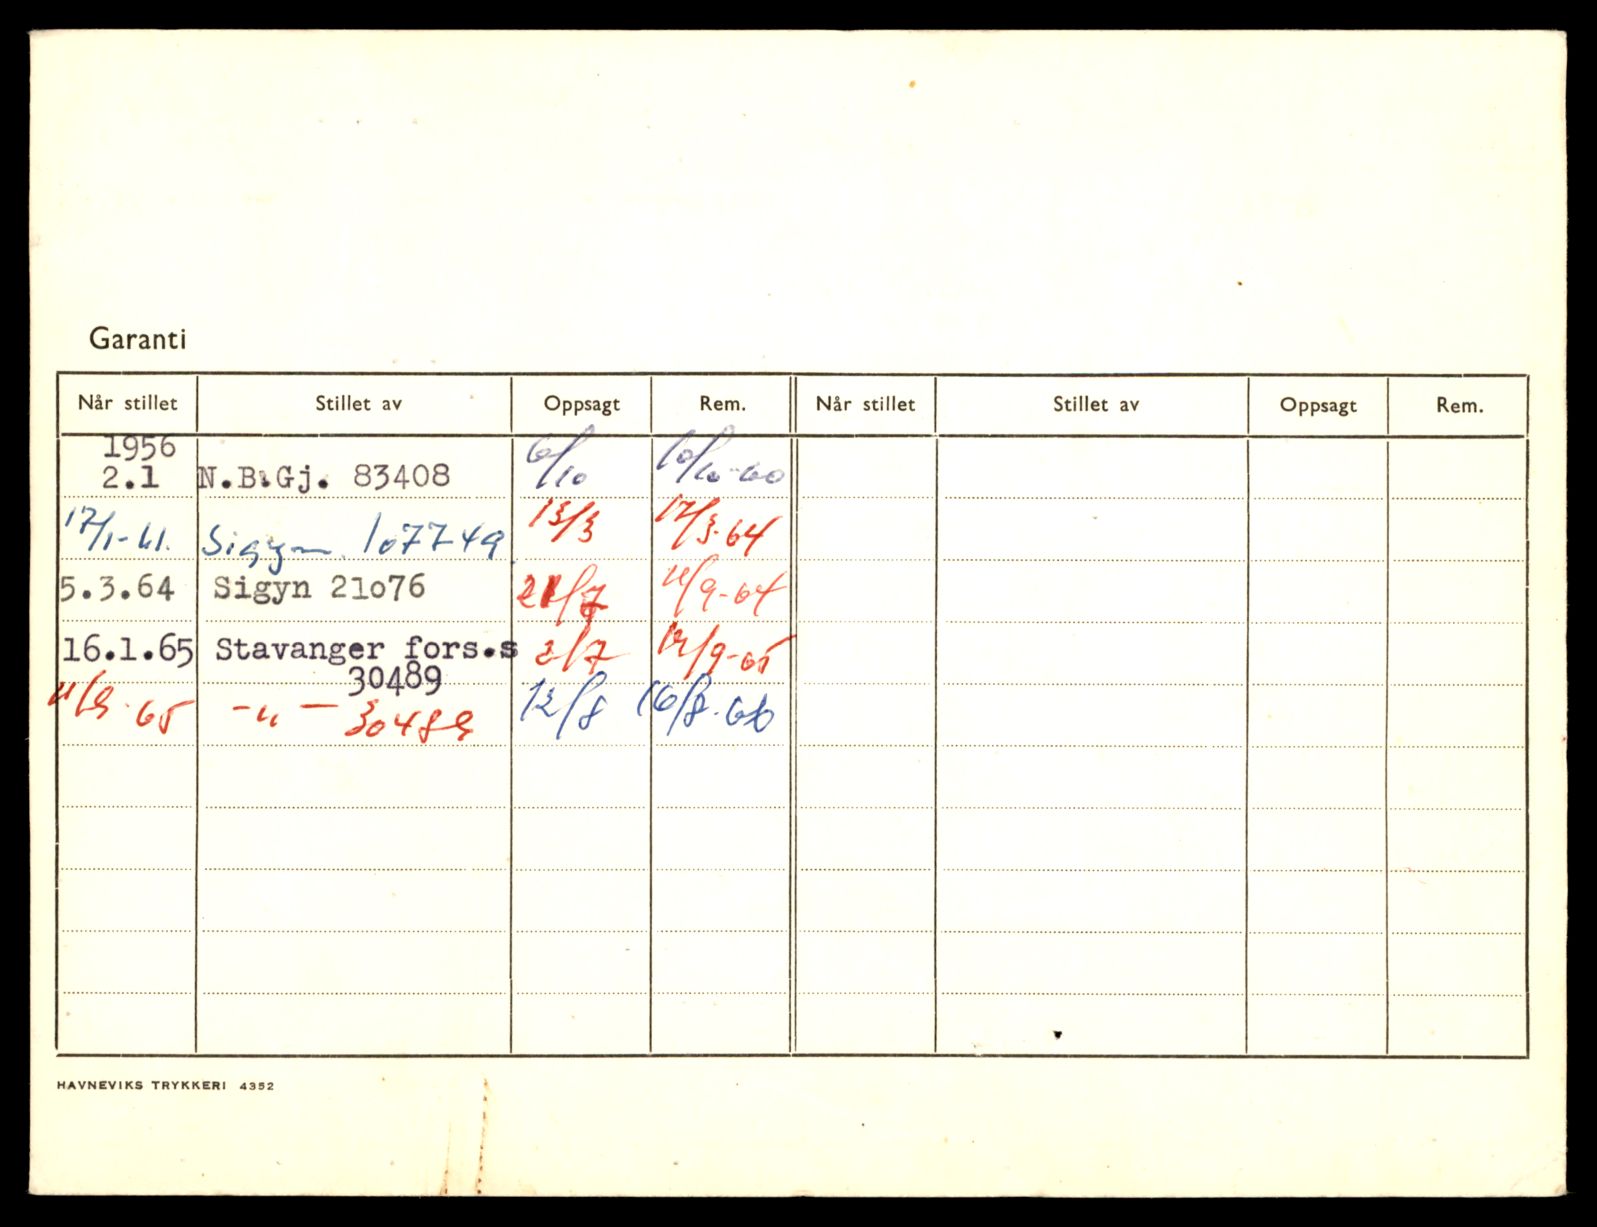 Garanti
Når stillet Stillet av Oppsagt Rem. Når stillet Stillet av Oppsagt Rem.
1956
2.1 N.B.Gj. 83408 6/10 10/10-60
17/1-61. Sigyn 107749 13/3 17/3-64
5.3.64 Sigyn 21o76 21/7 11/9-64
16.1.65 Stavanger fors.s 2/7 12/9-65
30489
11/9-65 -"- 30489 12/8 16/8-
HAVNEVIKS TRYKKERI 4352